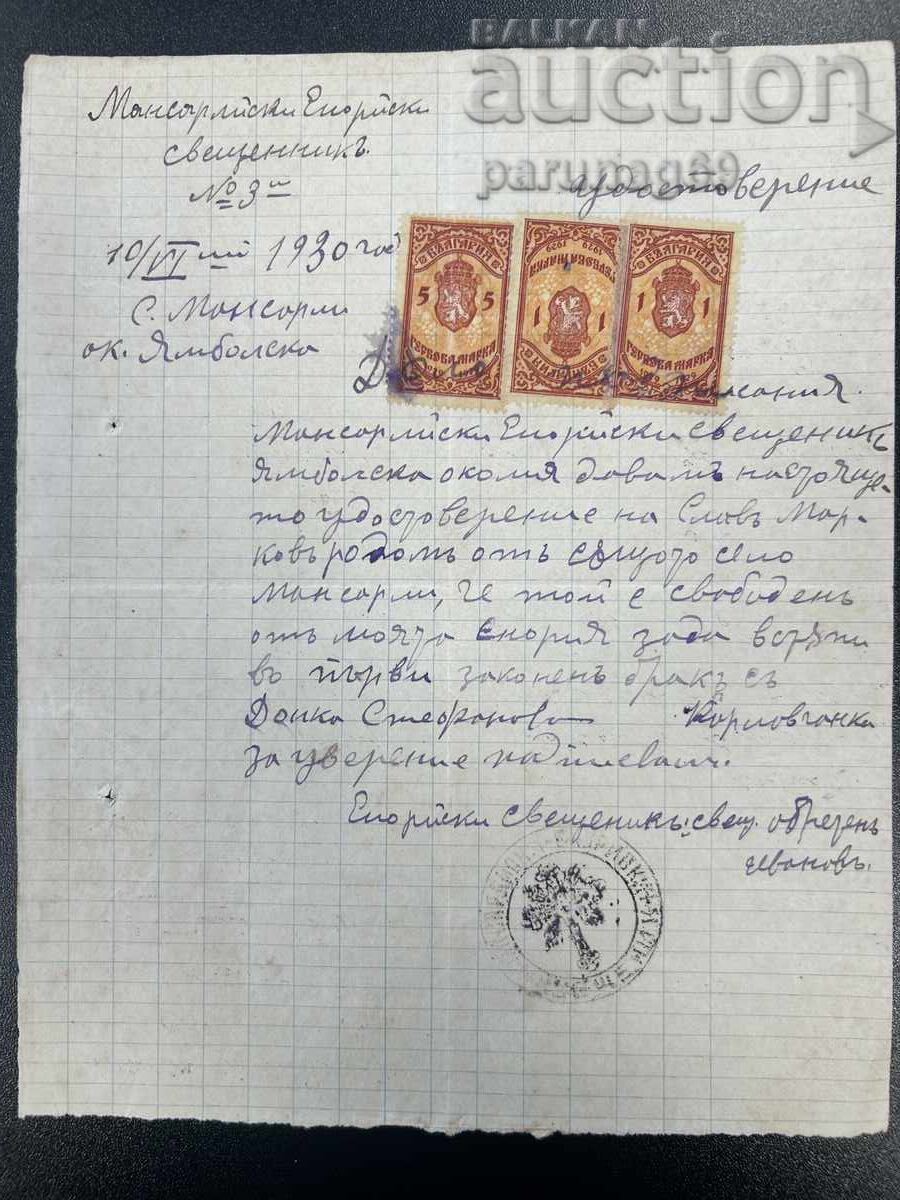 BALKAN
auction
parunag69
Мансарлийски Енорийски
свещенникъ
№ 3й
Удостоверение
10/VI-ий 1930 год
с. Мансарли
ок. Ямболска
БЪЛГАРИЯ
5 5
ГЕРБОВА МАРКА
БЪЛГАРИЯ
1 1
ГЕРБОВА МАРКА
БЪЛГАРИЯ
1 1
ГЕРБОВА МАРКА
Мансарлийски Енорийски свещеникъ
Ямболска околия давамъ настояще-
то удостоверение на Славъ Мар-
ковъ родомъ отъ същото село
Мансарли, че той е свободенъ
отъ моята енория за да встѫпи
въ първи законенъ бракъ съ
Донка Стефанова
за уверение надписвамъ.
Енорийски свещеникъ: свещ.
Ивановъ.